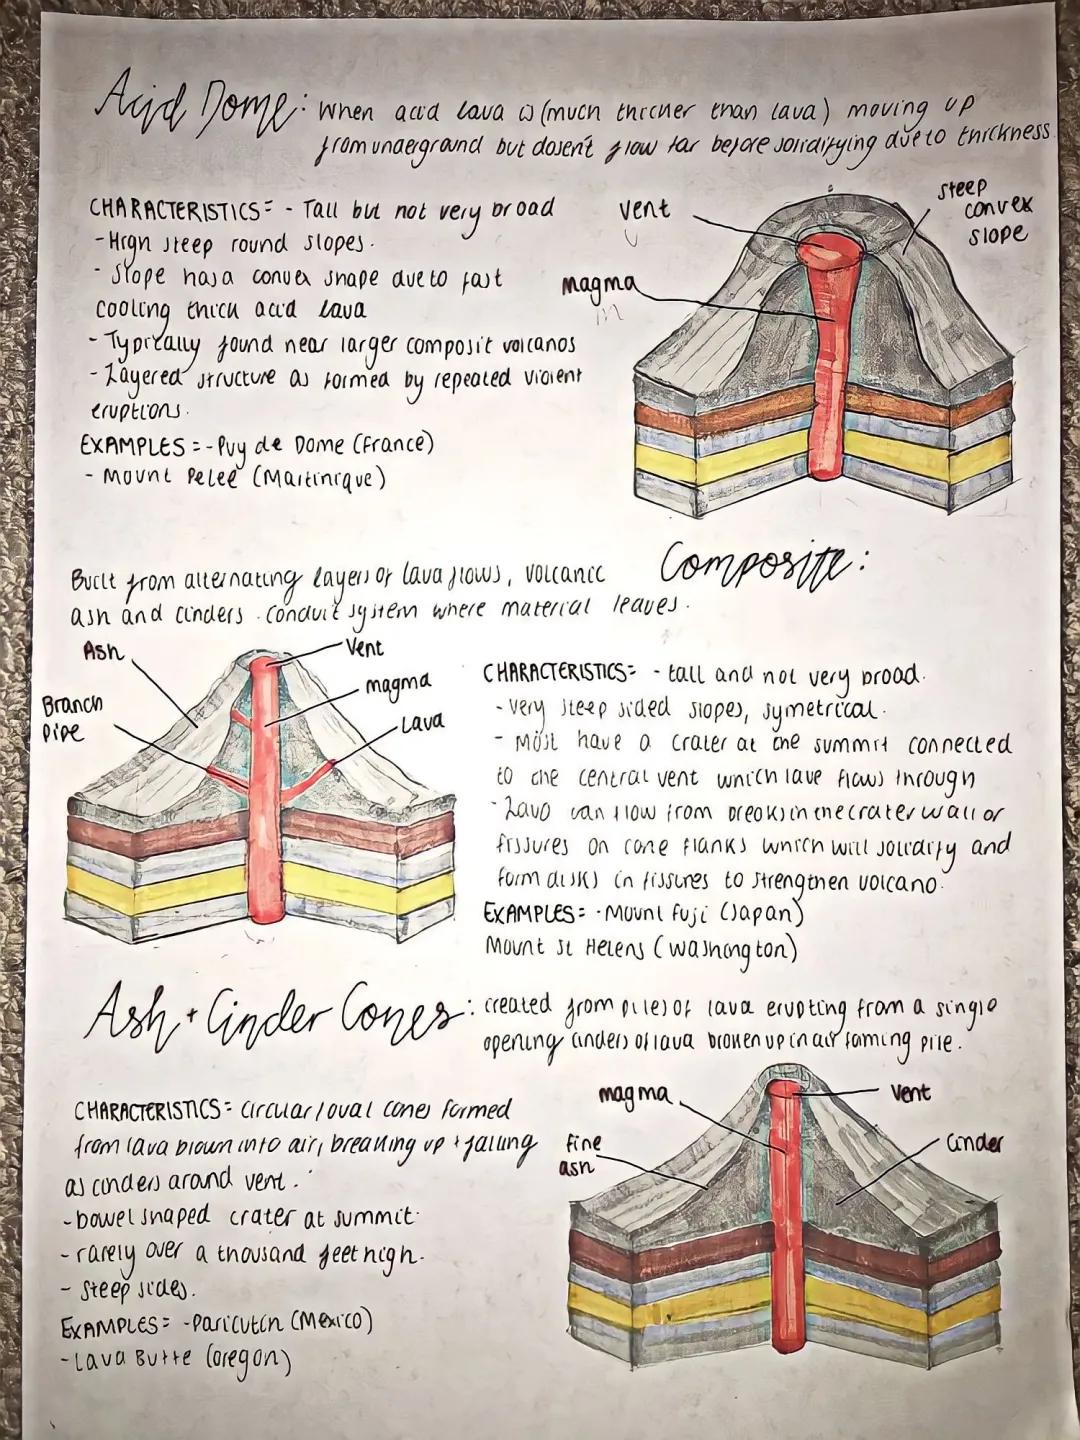 Acid Dome: When acid lava is (much thicker than lava) moving up
from underground but dosen't flow far before solidifying due to thickness
CHARACTERISTICS = - Tall but not very broad
- High steep round slopes.
- slope has a convex shape due to fast
cooling thick acid lava
- Typically found near larger composit volcanos
- Layered structure as formed by repeated violent
eruptions.
EXAMPLES = - Puy de Dome (France)
- Mount Peleé (Martinique)
vent
magma
steep
convex
slope
Composite:
Built from alternating layers of lava flows, volcanic
ash and cinders. conduit system where material leaves.
Ash
Branch
pipe
Vent
magma
Lava
CHARACTERISTICS = - tall and not very broad.
- Very steep sided slopes, symetrical.
- Most have a crater at the summit connected
to the central vent which lave flows through
- Lava can flow from breaks in the crater wall or
fissures on cone flanks which will solidify and
form disks in fissures to strengthen volcano.
EXAMPLES = - Mount Fuji (Japan)
Mount St Helens (Washington)
Ash + Cinder Cones: created from piles of lava erupting from a single
opening cinders of lava broken up in air forming pile.
CHARACTERISTICS = Circular/oval cones formed
from lava blown into air, breaking up + falling
as cinders around vent.
- bowel shaped crater at summit
- rarely over a thousand feet high.
- steep sides.
EXAMPLES = - Paricutin (Mexico)
- Lava Butte (oregon)
magma
Vent
fine
ash
Cinder